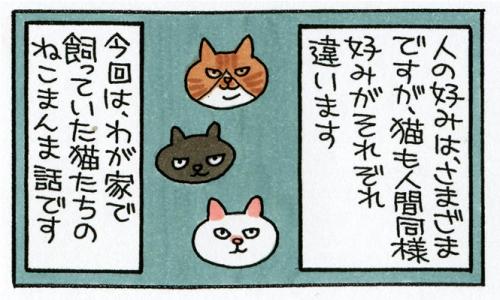 人の好みは、さまざま
ですが、猫も人間同様
好みがそれぞれ
違います
今回は、わが家で
飼っていた猫たちの
ねこまんま話です